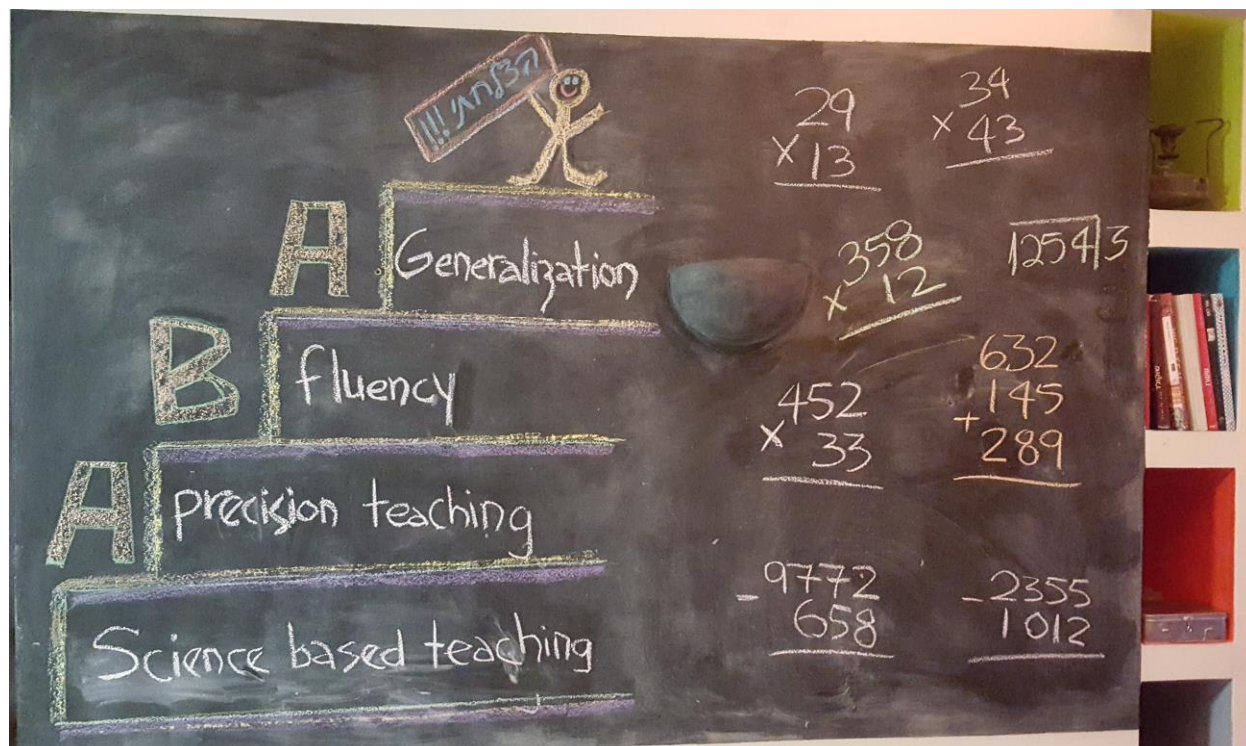 הצלחתי!!!
A
Generalization
B
fluency
A
precision teaching
Science based teaching
29
x 13
34
x 43
358
x 12
1254 3
452
x 33
632
145
+
289
- 9772
658
- 2355
1012